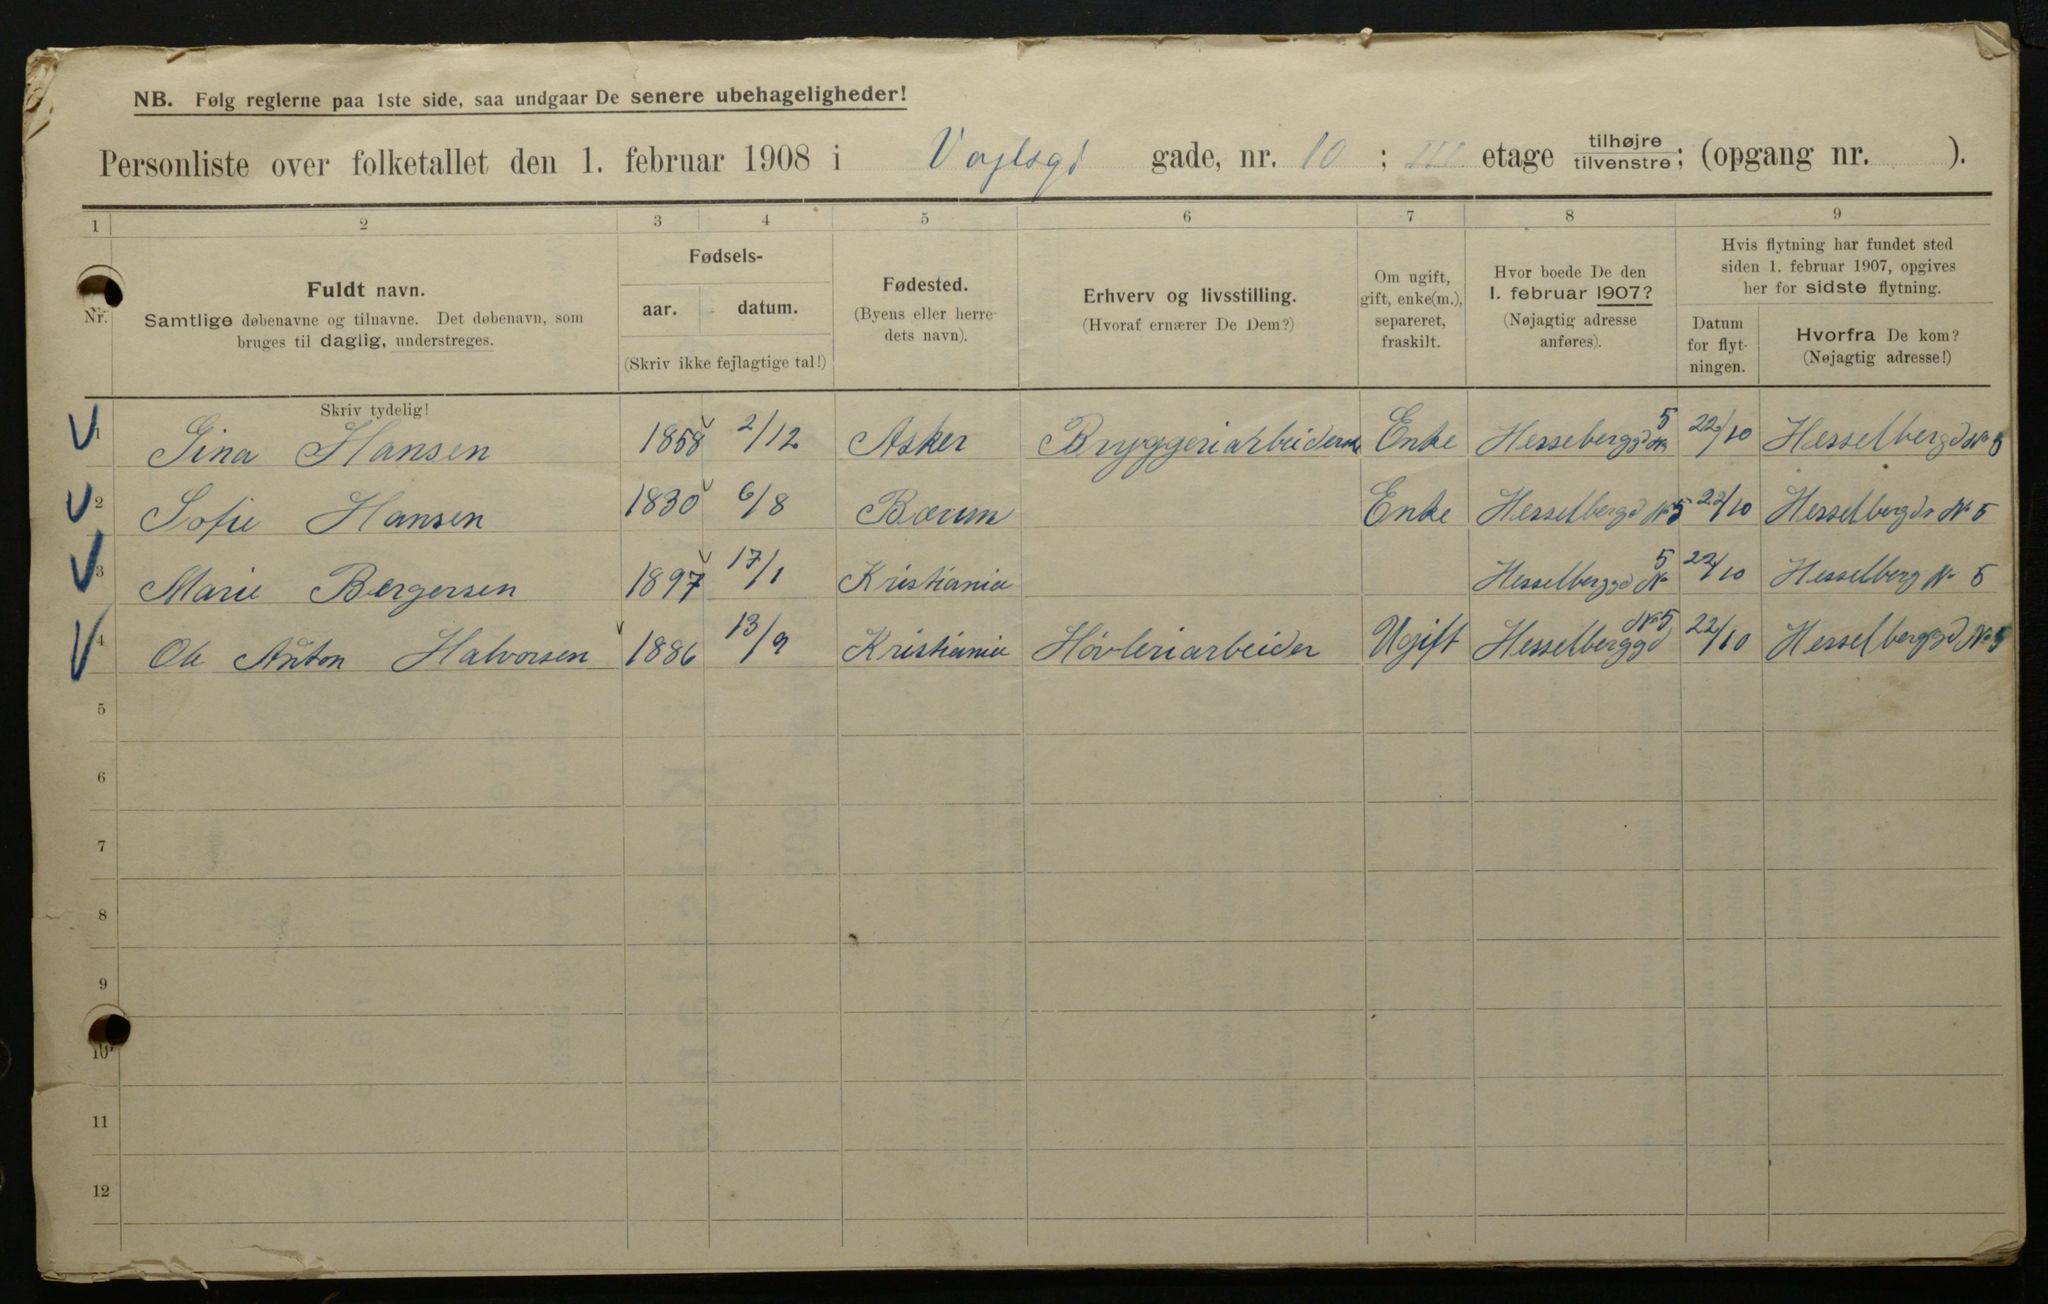 NB. Følg reglerne paa 1ste side, saa undgaar De senere ubehageligheder!
Personliste over folketallet den 1. februar 1908 i Vogtsgd gade, nr. 10 ; III etage tilhøjre tilvenstre; (opgang nr. ).
1 2 3 4 5 6 7 8 9
Nr. Fuldt navn. Samtlige døbenavne og tilnavne. Det døbenavn, som bruges til daglig, understreges.
Fødsels-
aar. datum.
(Skriv ikke fejlagtige tal!)
Fødested. (Byens eller herredets navn).
Erhverv og livsstilling. (Hvoraf ernærer De Dem?)
Om ugift, gift, enke(m.), separeret, fraskilt.
Hvor boede De den 1. februar 1907? (Nøjagtig adresse anføres).
Hvis flytning har fundet sted siden 1. februar 1907, opgives her for sidste flytning.
Datum for flytningen.
Hvorfra De kom? (Nøjagtig adresse!)
Skriv tydelig!
1 Gina Hansen 1858 2/12 Asker Enke Hessebergsgd No 5 22/10 Hesselbergd No 5
2 Sofie Hansen 1830 6/8 Bærum Enke Hesselbergd No 5 22/10 Hesselbergd No 5
3 Marie Bergersen 1897 17/1 Kristiania Hesselberggd No 5 22/10 Hesselberg No 5
4 Ole Anton Halvorsen 1886 13/9 Kristiania Høvleriarbeider Ugift Hesselberggd No 5 22/10 Hesselberggd No 5
5
6
7
8
9
10
11
12